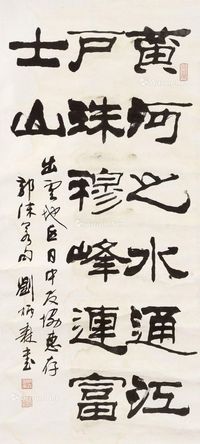 黄河之水通江
户珠穆峰連富
士山
出雲地区日中友協惠存
郭沫若句 劉炳森書